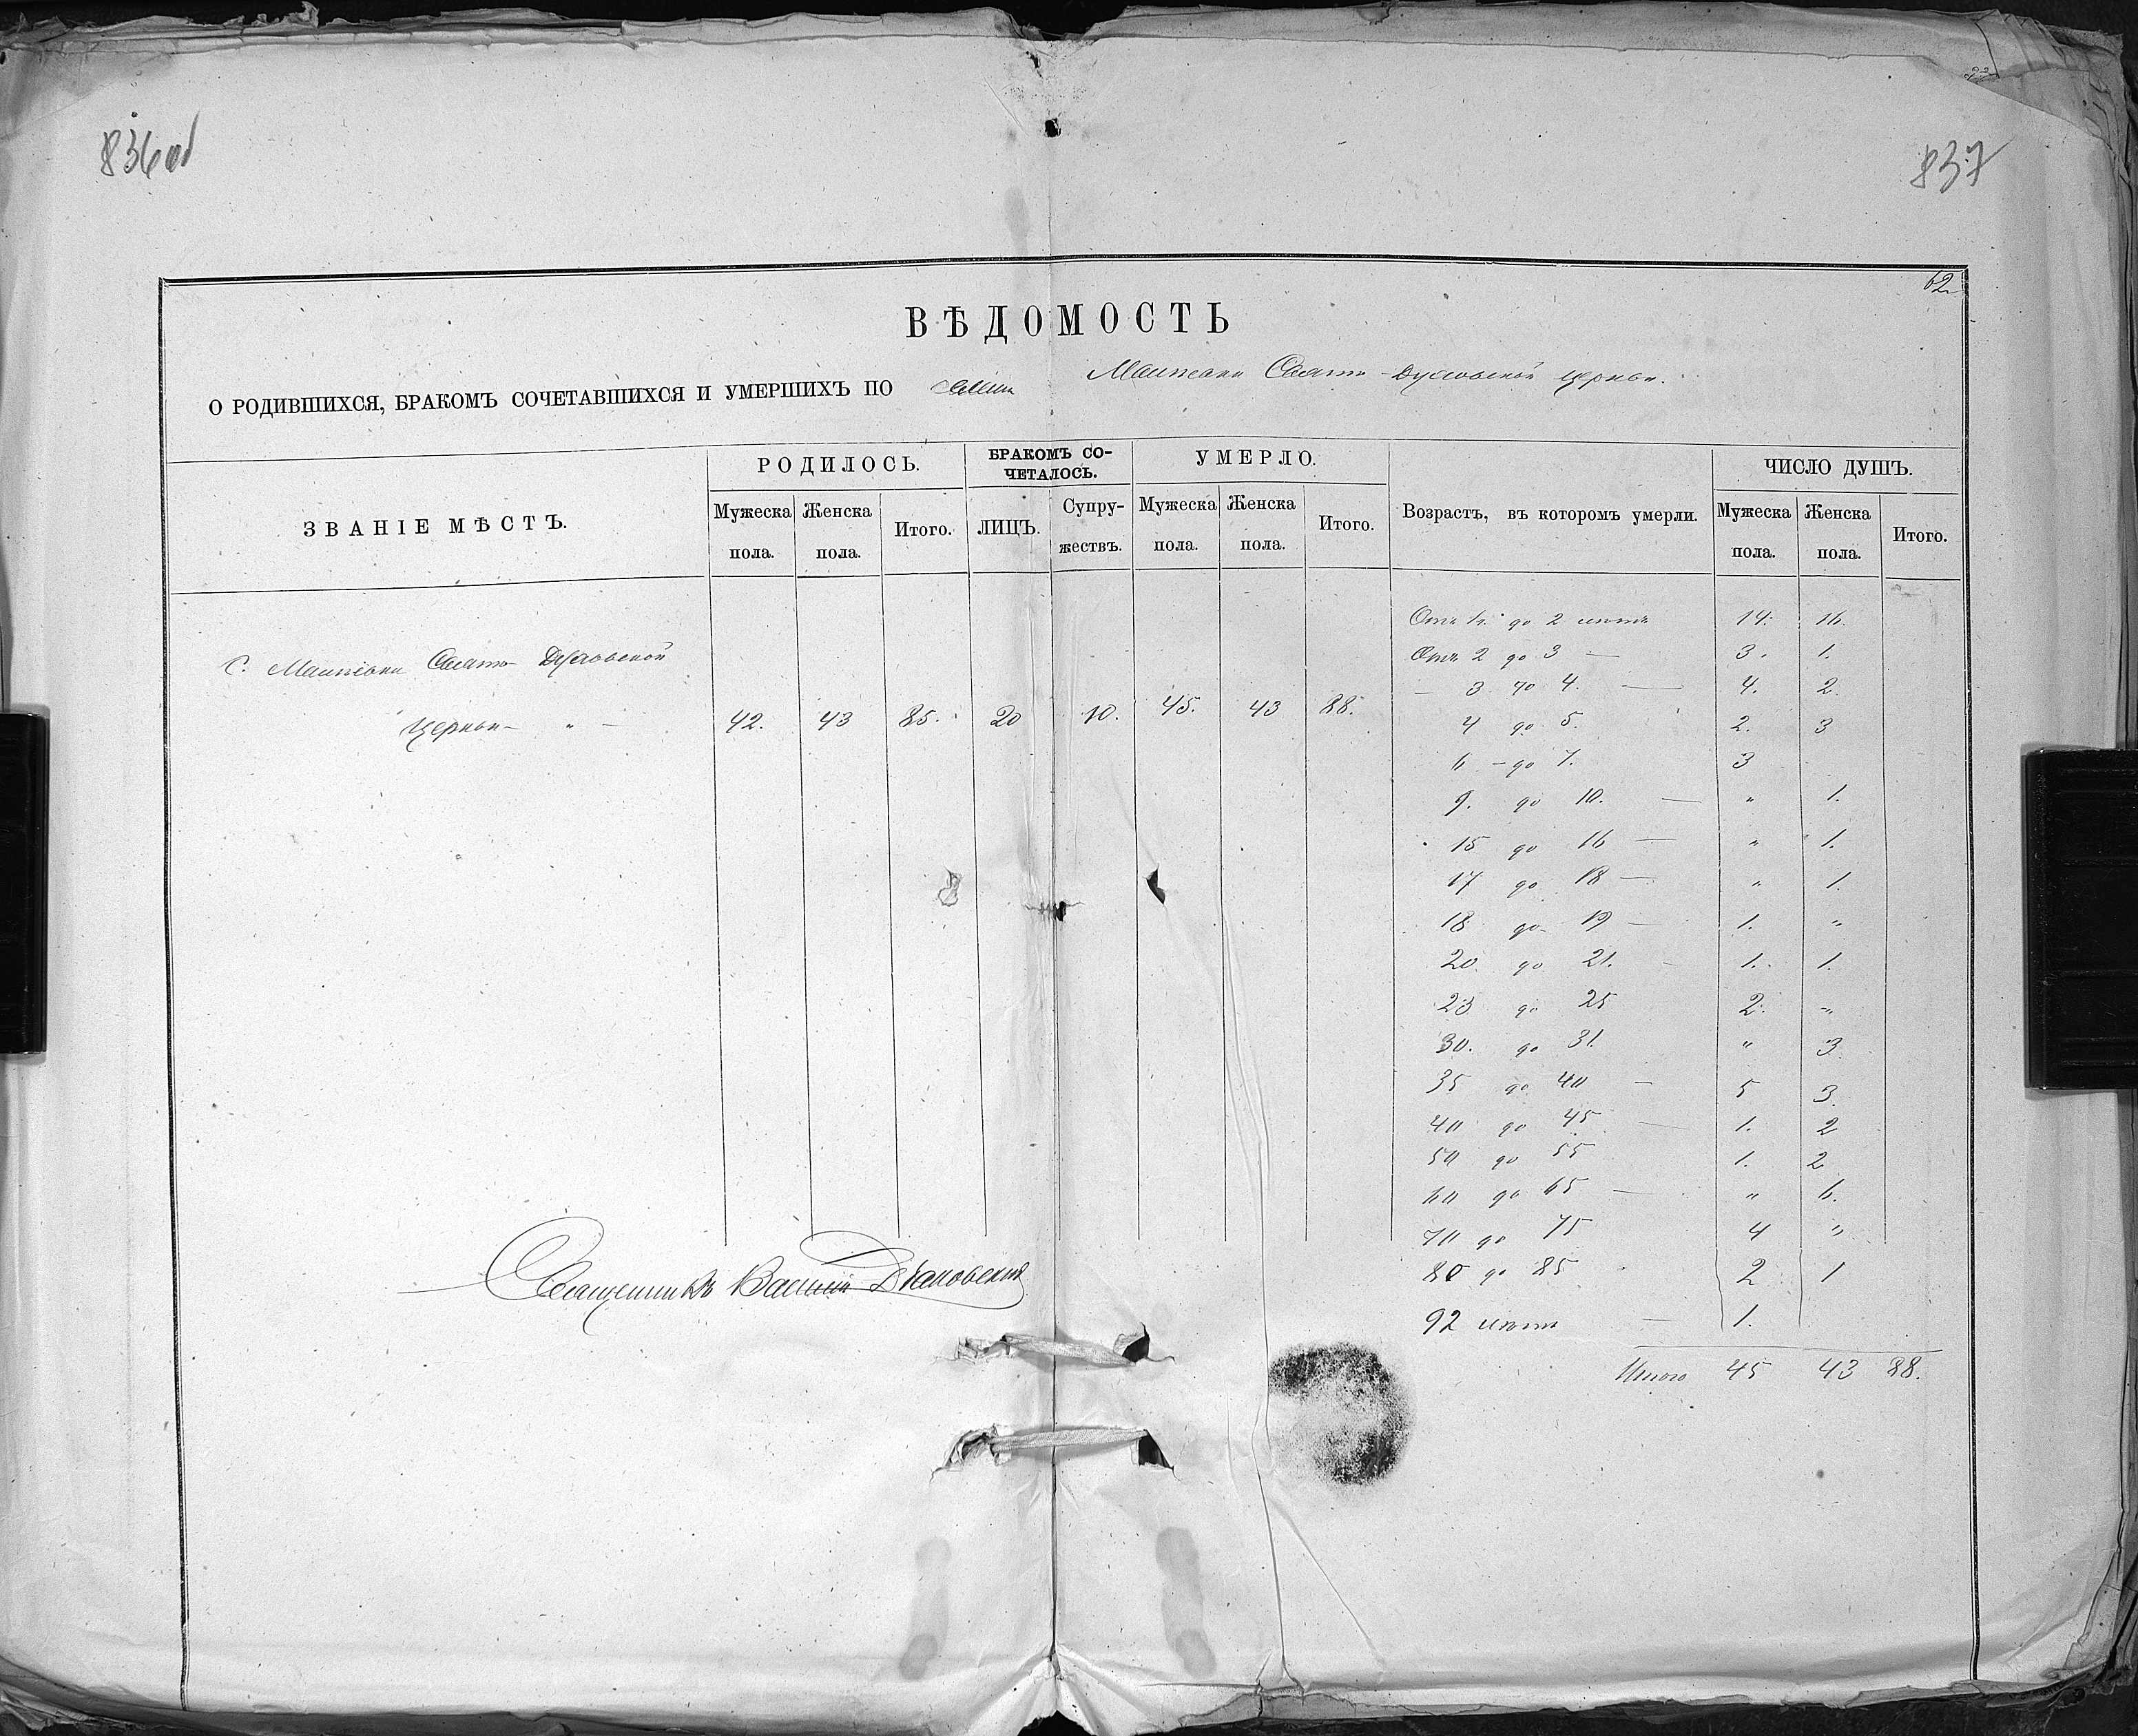 836об
837
62
ВѢДОМОСТЬ
О РОДИВШИХСЯ, БРАКОМЪ СОЧЕТАВШИХСЯ И УМЕРШИХЪ ПО Свято-Духовской церкви.
ЗВАНІЕ МѢСТЪ. РОДИЛОСЬ. БРАКОМЪ СО-ЧЕТАЛОСЬ. УМЕРЛО. Возрастъ, въ которомъ умерли. ЧИСЛО ДУШЪ.
Мужеска пола. Женска пола. Итого. ЛИЦЪ. Супру-жествъ. Мужеска пола. Женска пола. Итого. Мужеска пола. Женска пола. Итого.
С. Свято-Духовской
церкви - „ - 42. 43 85. 20 10. 45. 43 88.
Отъ 1г. до 2 лѣтъ 14. 16.
Отъ 2 до 3 — 3. 1.
— 3 до 4. — 4. 2
4 до 5. 2. 3
6 - до 7. 3
9. до 10. — „ 1.
15 до 16 — „ 1.
17 до 18 — „ 1.
18 до 19 — 1. „
20 до 21. 1. 1.
23 до 25 2. „
30. до 31. „ 3.
35 до 40 — 5 3.
40 до 45 — 1. 2
50 до 55 1. 2
60 до 65 — „ 6.
70 до 75 4 „
80 до 85 2 1
92 лѣтъ — 1.
Итого 45 43 88.
Священникъ Василій Дѣяковскій